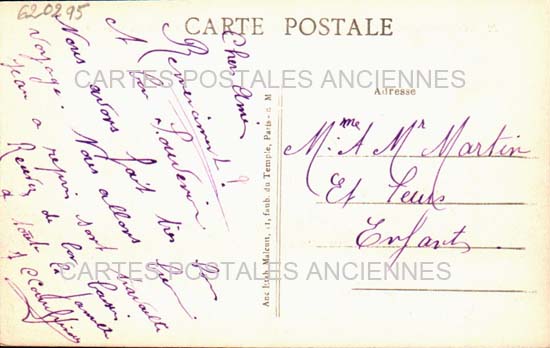 620295
CARTE POSTALE
CARTES POSTALES ANCIENNES
Adresse
Chers Amis
Remerciment
A bon Souvenir
Nous avons fait bon
voyage. Nous allons bien
Jean a repris son travaille
Recevez de bons baisers
a toute la famille
Mme & Mr Martin
Et Leurs
Enfants
Anc Etab. Malcuit, 41, faub. du Temple, Paris - C M
CARTES POSTALES ANCIENNES